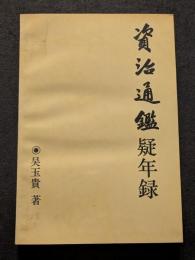 資治通鑑疑年録
◉吴玉貴 著